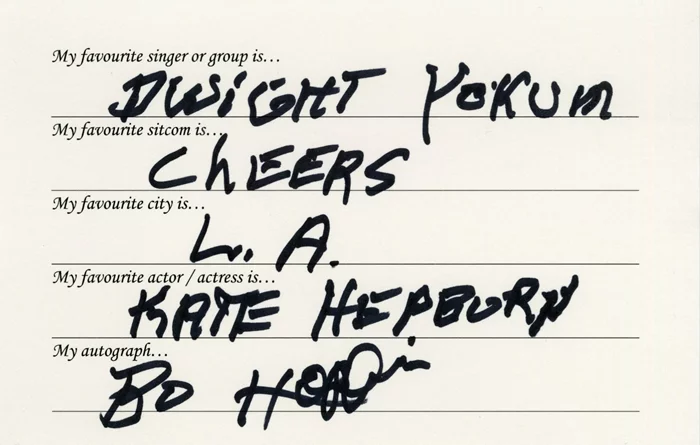 My favourite singer or group is...
DWIGHT YOKUM
My favourite sitcom is...
CHEERS
My favourite city is...
L. A.
My favourite actor / actress is...
KATE HEPBURN
My autograph...
Bo